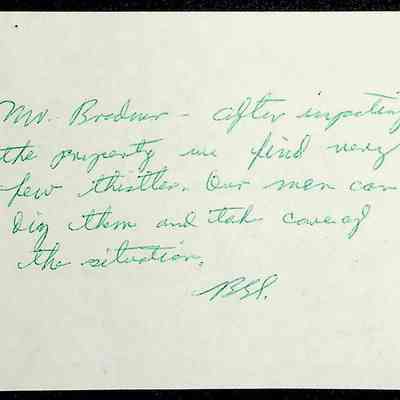 Mr. Bradner - after inspecting
the property we find very
few thistles. Our men can
dig them and take care of
the situation.